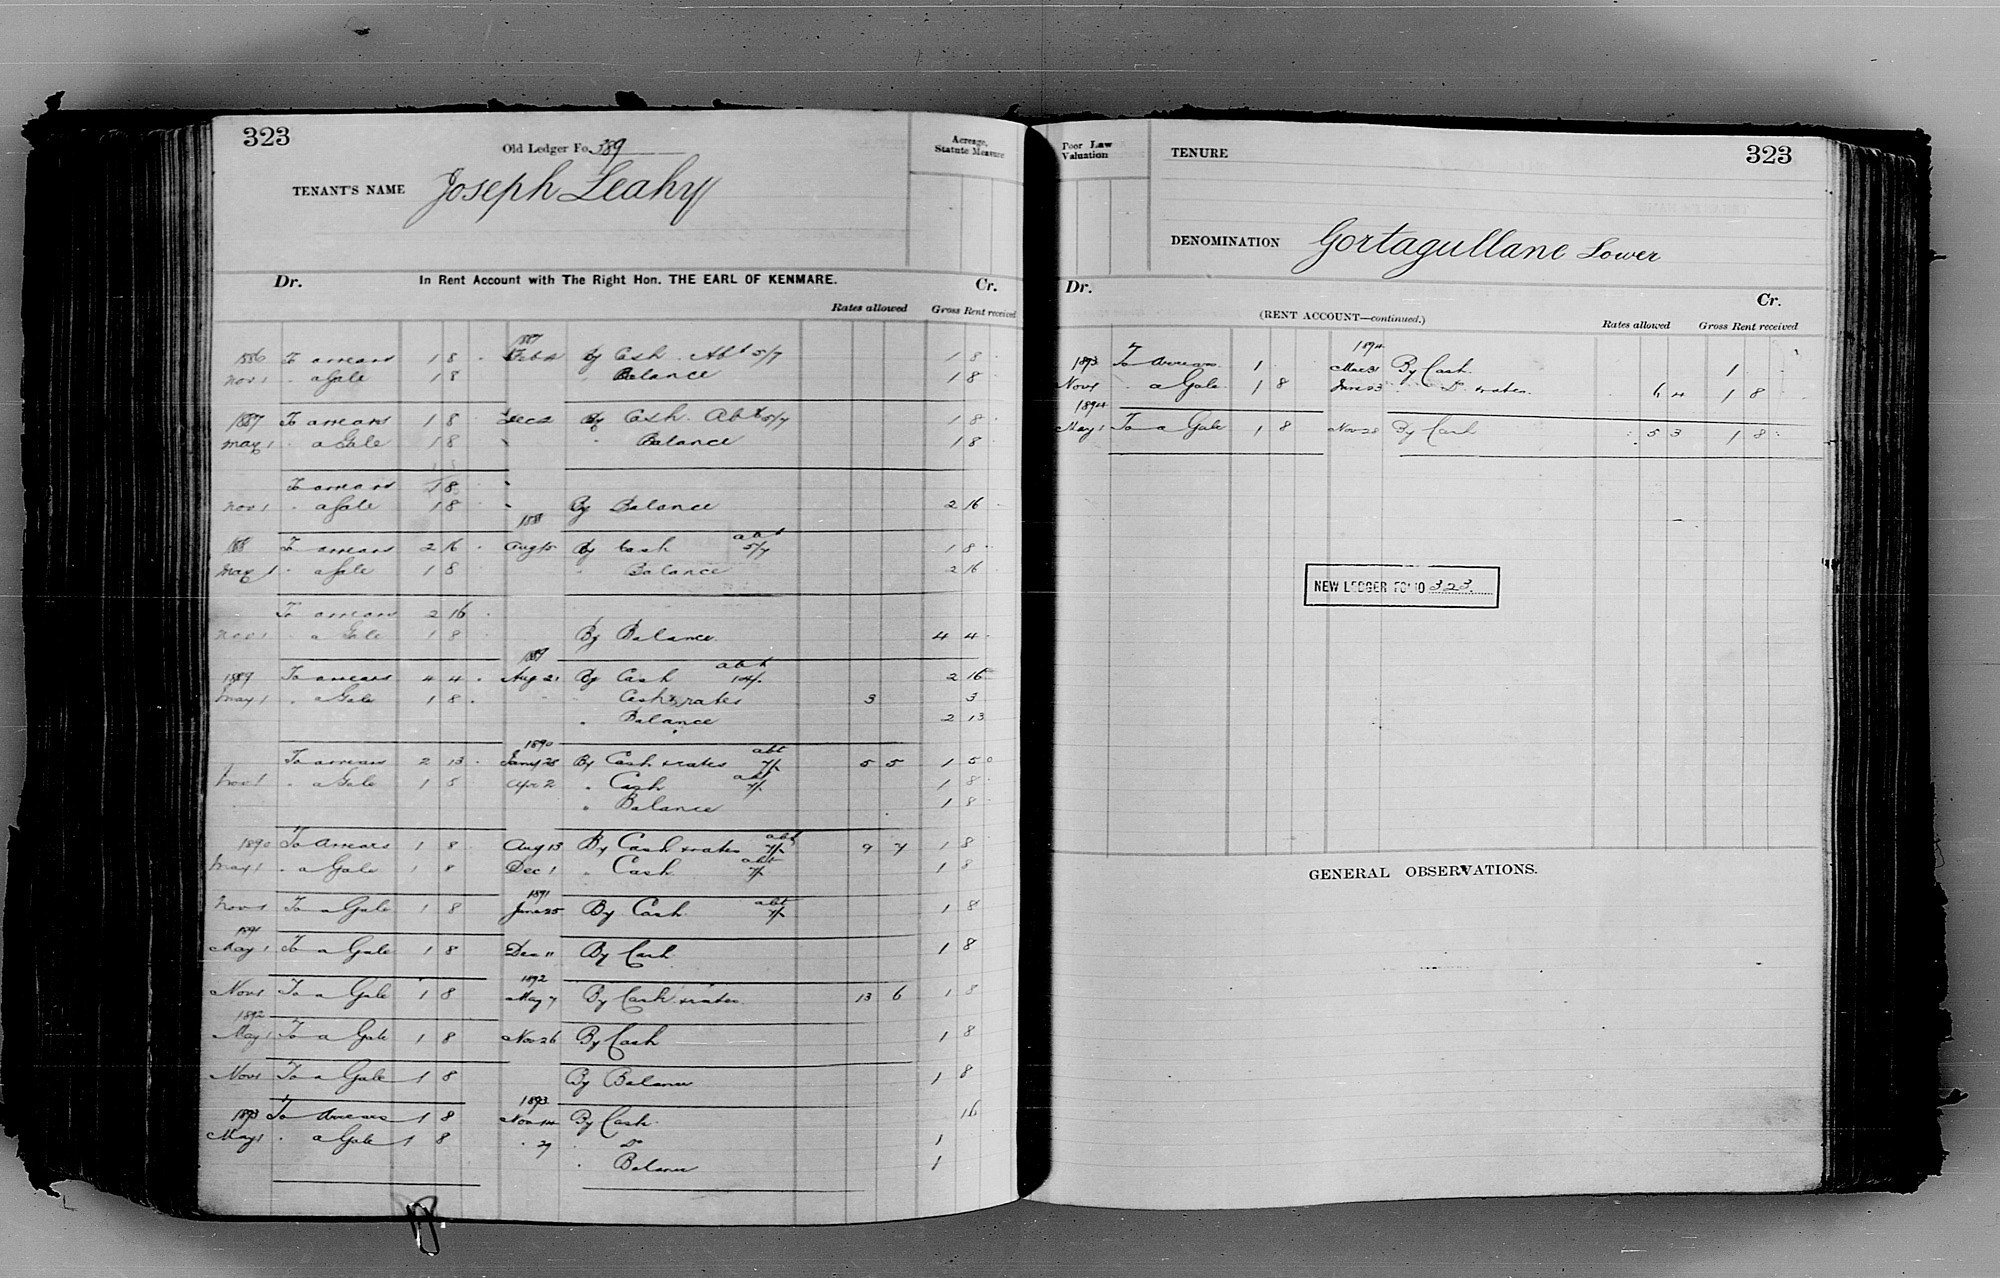 323
Old Ledger Fo. 389
TENANT'S NAME Joseph Leahy
Acreage, Statute Measure
Dr. In Rent Account with The Right Hon. THE EARL OF KENMARE. Cr.
Rates allowed Gross Rent received
1887
1886 To arrears 1 8 . By Cash . Abt 5/7 1 8
Nov 1 " a Gale 1 8 " Balance 1 8
1887 To arrears 1 8 . Dec 2 By Cash . Abt 5/7 1 8
May 1 " a Gale 1 8 " Balance 1 8
To arrears 1 8
Nov 1 " a Gale 1 8 By Balance 2 16
1888
1888 To arrears 2 16 . Aug 15 By Cash abt 5/7 1 8
May 1 " a Gale 1 8 " Balance 2 16
To arrears 2 16 .
Nov 1 " a Gale 1 8 By Balance 4 4
1889
1889 To arrears 4 4 . Aug 21 By Cash abt 2 16
May 1 " a Gale 1 8 . " Cash & rates 3 3
" Balance 2 13
1890
To arrears 2 13 . Jany 28 By Cash & rates abt 7/. 5 5 1 5 0
Nov 1 " a Gale 1 8 Apr 2 " Cash abt 7/. 1 8
" Balance 1 8
1890 To Arrears 1 8 Aug 13 By Cash & rates abt 7/. 9 7 1 8
May 1 " a Gale 1 8 Dec 1 " Cash abt 7/. 1 8
1891
Nov 1 To a Gale 1 8 June 25 By Cash abt 7/. 1 8
1891
May 1 To a Gale 1 8 Dec 11 By Cash 1 8
1892
Nov 1 To a Gale 1 8 May 7 By Cash & rates 13 6 1 8
1892
May 1 To a Gale 1 8 Nov 26 By Cash 1 8
Nov 1 To a Gale 1 8 By Balance 1 8
1893
1893 To Arrears 1 8 Nov 14 By Cash 16
May 1 " a Gale 1 8 " 29 " Do 1
" Balance 1
323
Poor Law Valuation
TENURE
DENOMINATION Gortagullane Lower
Dr. Cr.
(RENT ACCOUNT—continued.)
Rates allowed Gross Rent received
1894
1893 To Arrears 1 Mar 31 By Cash 1
Nov 1 " a Gale 1 8 June 23 " Do & rates 6 4 1 8
1894
May 1 To a Gale 1 8 Nov 28 By Cash 5 3 1 8
NEW LEDGER FOLIO 323.
GENERAL OBSERVATIONS.